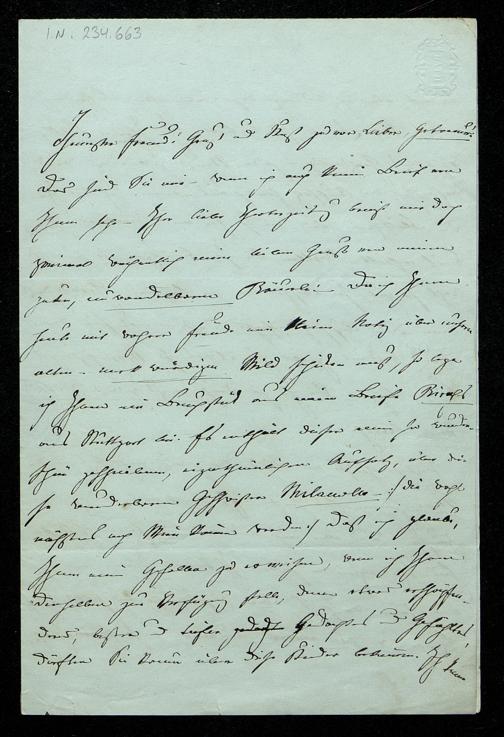 I.N. 234.663
Theuerster Freund! Gruß und Kuß zuvor Lieber, Getreuer!
Das sind Sie mir – wenn ich auch keinen Brief von
Ihnen sehe – Ihre liebe Theaterzeitung bringt mir doch
zweimal wöchentlich einen lieben Gruß von meinem
guten, unwandelbaren Bäuerle! Da ich Ihnen
heute mit wahrer Freude eine kleine Notiz über unsern
alten – merkwürdigen Wild schicken muß, so lege
ich Ihnen ein Bruchstück aus einem Briefe
aus Stuttgart bei. Es enthält dieser einen so wunder-
schön geschriebenen, eigenthümlichen Aufsatz, über die
so wunderbaren Geschwister Milanollo – :/ die wohl
nächstens nach Wien kommen werden /: daß ich glaube,
Ihnen einen Gefallen zu erweisen, wenn ich Ihnen
denselben zur Verfügung stelle, denn etwas erschöpfen-
deres, besser und tiefer Gedachtes und Gefühltes
dürften Sie kaum über diese Kinder bekommen. Ich